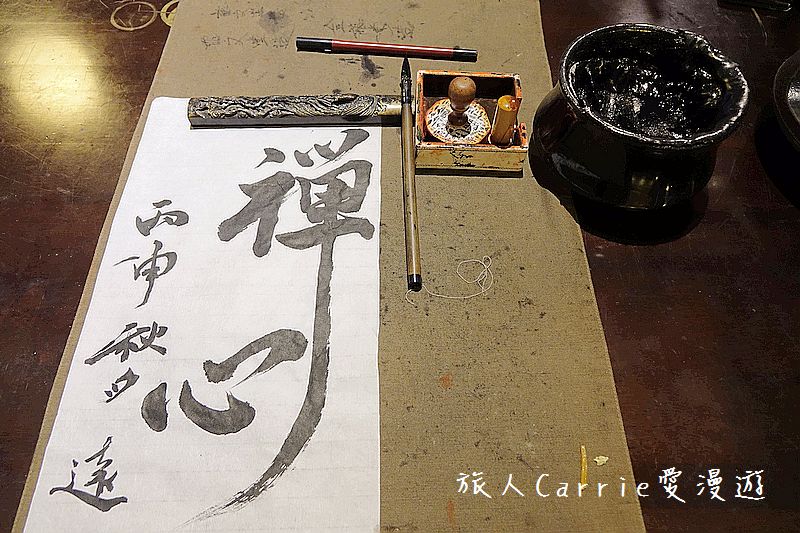 禪心
丙申秋
遠
旅人Carrie愛漫遊